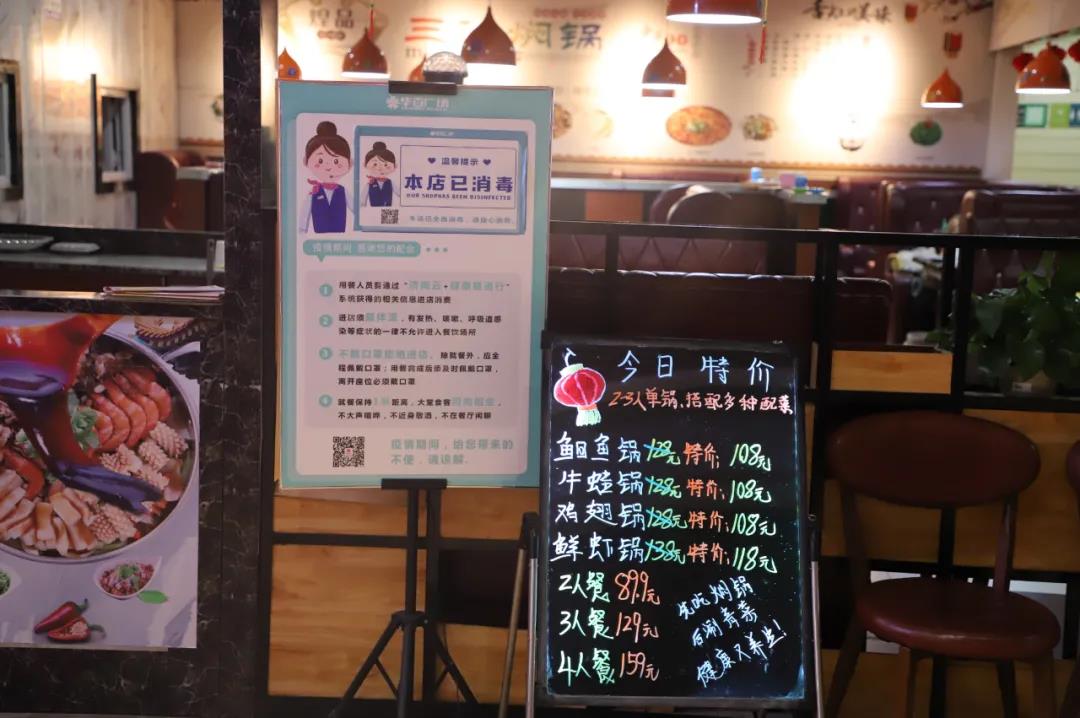 煌品
三
焖锅
舌尖的美味
华百广场
温馨提示
本店已消毒
OUR SHOPHAS BEEN DISINFECTED
本店已全面消毒，请放心消费。
疫情期间 感谢您的配合
1 用餐人员需通过“济南云+健康易通行”
系统获得的相关信息进店消费
2 进店须测体温，有发热、咳嗽、呼吸道感
染等症状的一律不允许进入餐饮场所
3 不戴口罩拒绝进店，除就餐外，应全
程佩戴口罩；用餐完成后须及时佩戴口罩，
离开座位必须戴口罩
4 就餐保持1米距离，大堂食客
不大声喧哗，不近身敬酒，不在餐厅闲聊
疫情期间，给您带来的
不便，请谅解.
今日特价
2-3人单锅、搭配多种配菜
鮰鱼锅 128元 特价：108元
牛蛙锅 128元 特价：108元
鸡翅锅 128元 特价：108元
鲜虾锅 138元 特价：118元
2人餐 89.9元
3人餐 129元
4人餐 159元
先吃焖锅
后涮青菜
健康又养生！